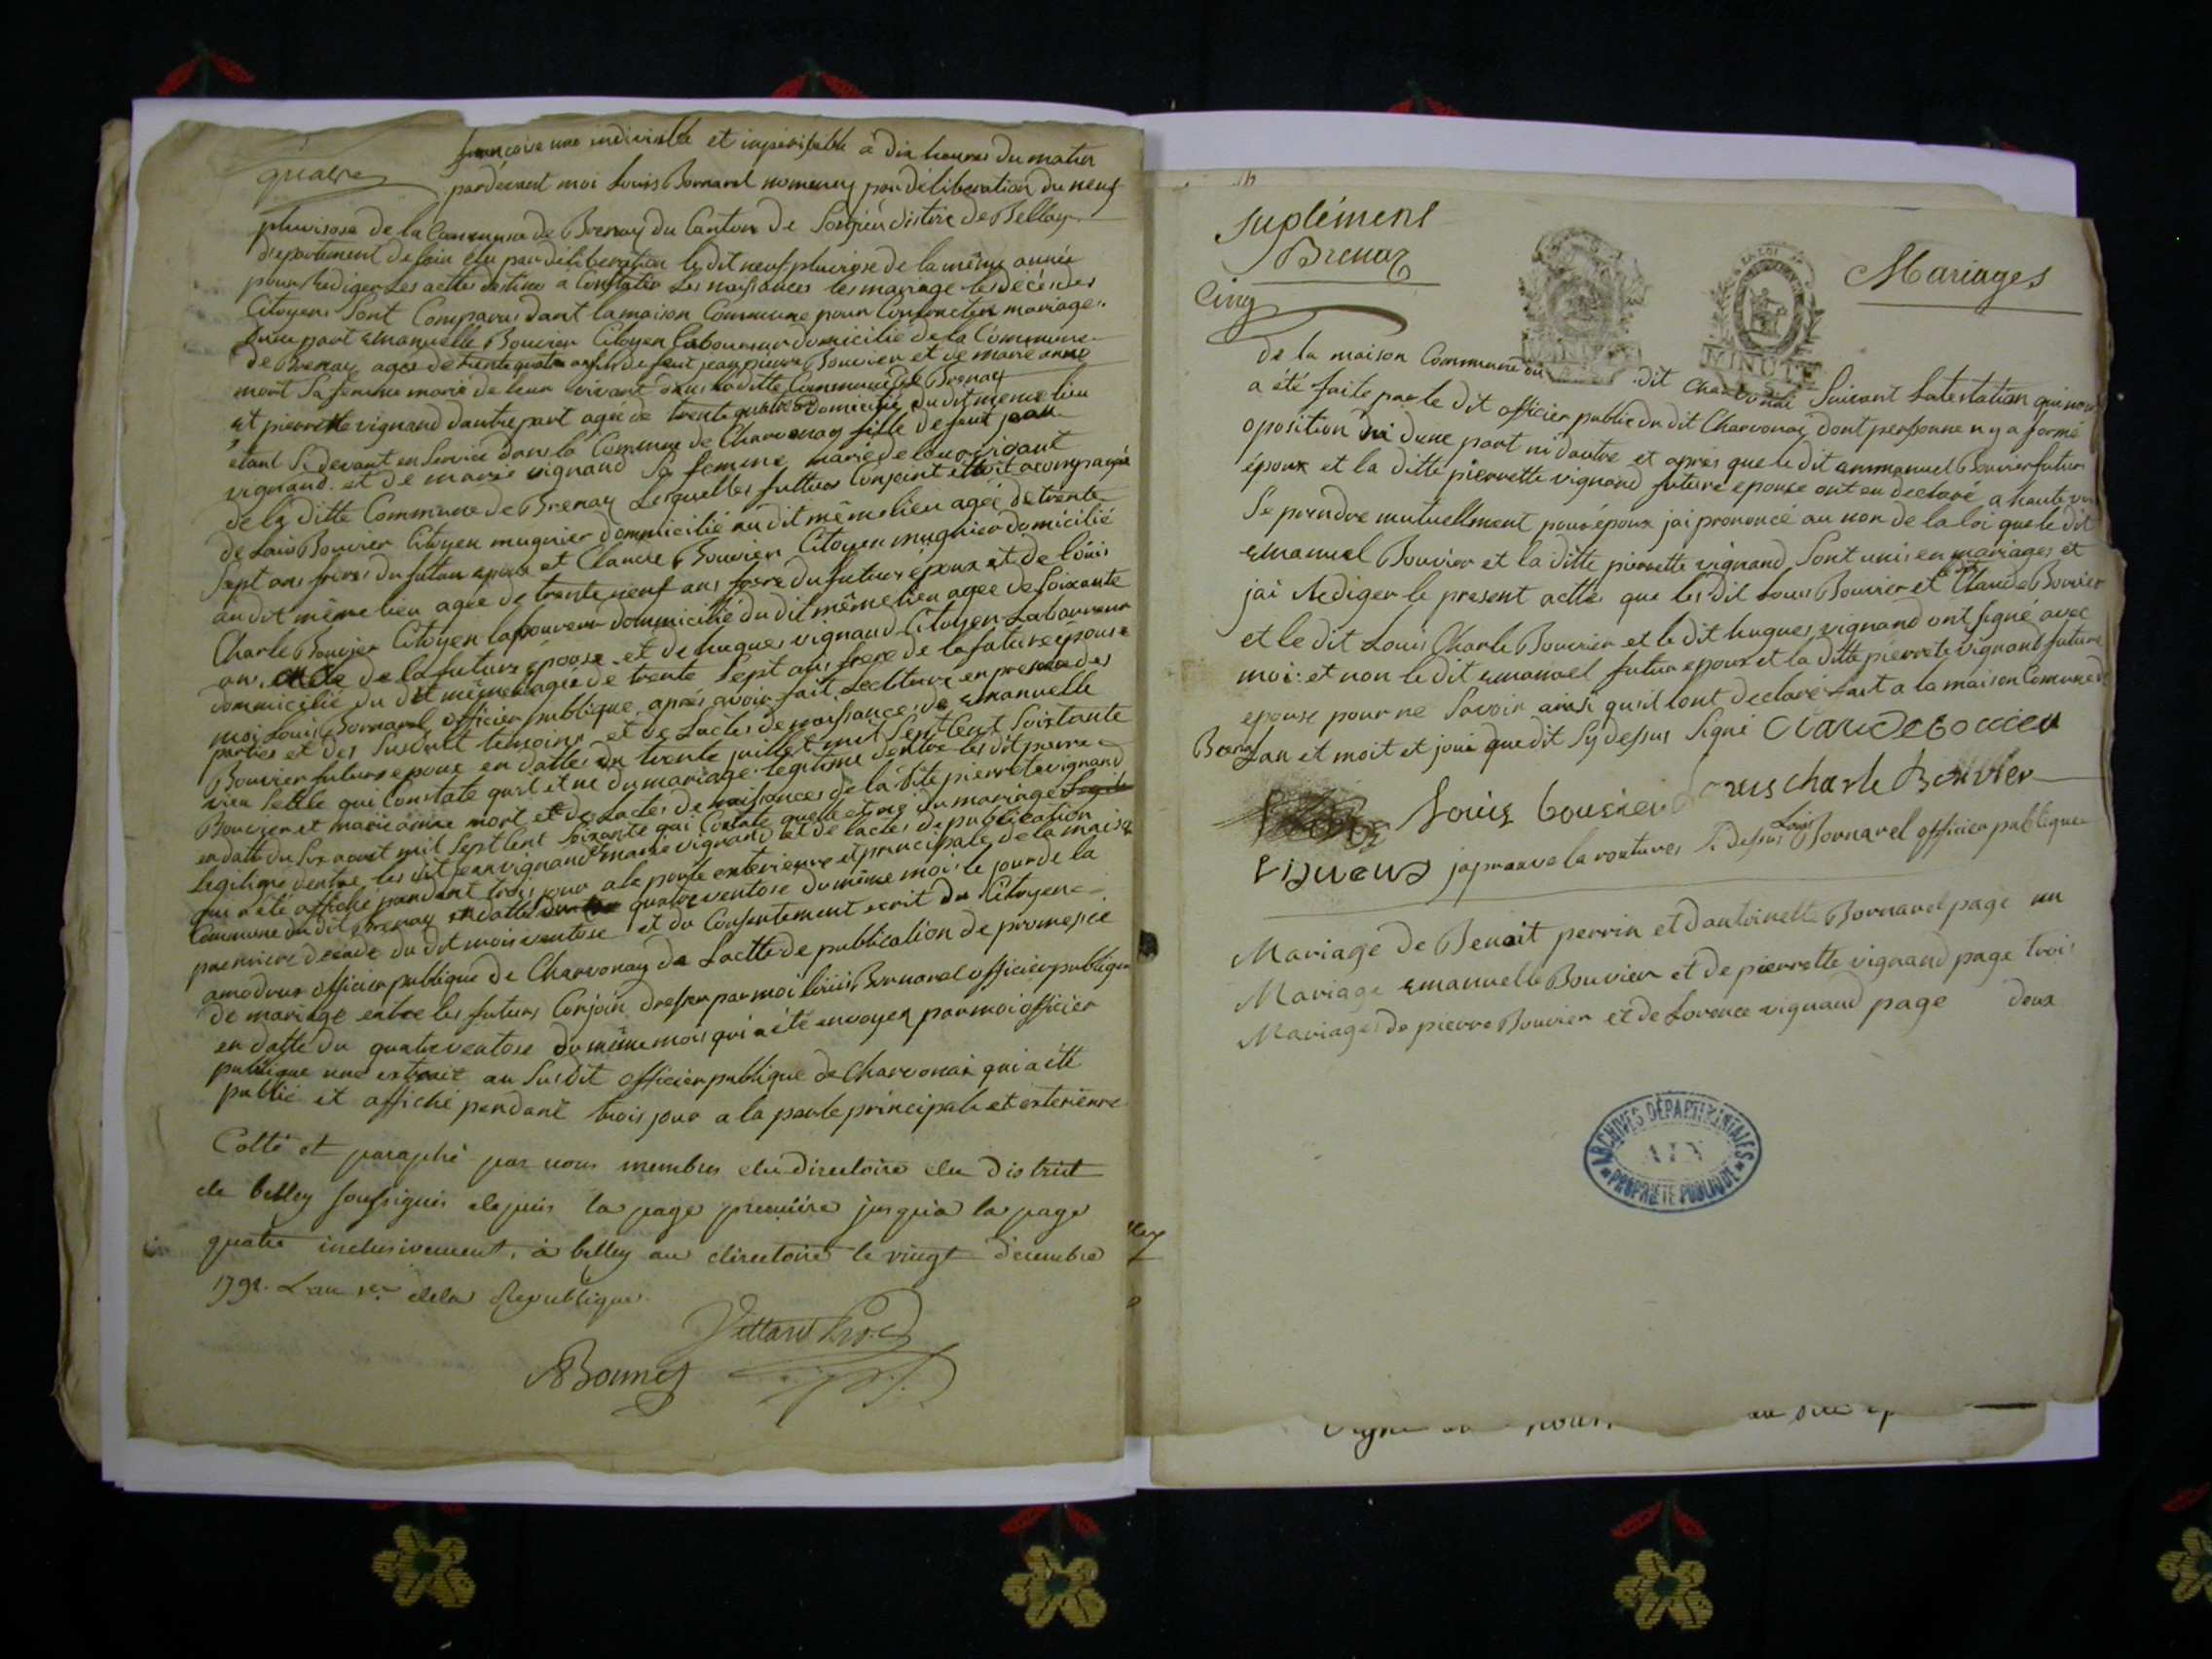 quatre
françoise une indivisible et imperissable a dix heures du matin
pardevant moi Louis Bornarel nommeny par déliberation du neuf
pluviose de la Commune de Brenay du Canton de district de Belley
departement de élu par déliberation le dit neuf pluviose de la même année
pour Rediger les actes destines a Constater Les naissances les mariage les décés des
Citoyens Sont Comparus dant la maison Commune pour Contracter mariage
dune part Emanuelle Bouvier Citoyen laboureur domicilié de la Commune
de Brenay agés de trente quatre ans fils de feut jean pierre Bouvier et de marie anne
mort Sa femme marié de leur vivant dans la ditte Commune de Brenay
et pierrette vignand dautre part agée de trente quatre domicilié du dit meme lieu
etant Si devant en Service dans la Commune de Charvonay fille de feut jean
vignand et de marie vignand Sa femme marié de leur vivant
de la ditte Commune de Brenay Lesquelles futturs Conjoint etoit acompagné
de Louis Bouvier Citoyen mugnier dommicilié au dit même lieu agée de trente
Sept ans freres du futur epoux et Claude Bouvier Citoyen mugnier domicilié
au dit même lieu agée de trente neuf ans frere du futur époux et de Louis
Charle Bouvier Citoyen laboureur dommicilié du dit même lieu agée de Soixante
an oncle de la future épouse et de hugues vignand Citoyen Laboureur
dommicilié du dit même lieu agée de trente Sept ans frere de la future épouse
moi Louis Bornarel officier publique aprés avoir fait Lectture en presence des
parties et des Susdit temoins et de Lactes de naissances de Emanuelle
Bouvier futurs epoux en datte du trente juillet mil Sept Cent Soixtante
qui Constate quil et ne du mariage legitime dentre les dit pierre
Bouvier et marie anne mort et de Lactes de naissances de la dite pierrette vignand
en datte du Six aout mil Sept Cent Soixante qui Constate quelle et ne du mariage
legitime dentre les dit jean vignand et marie vignand et de lactes de publication
qui a été affiche pendant trois jour a la porte exterieure et principale de la maison
Commune du dit Brenay en datte du quatre ventose du même mois le jour de la
premiere decade du dit mois ventose et du Consentement ecrit du Citoyen
amodrus officier publique de Charvonay de Lactte de publication de promesse
de mariage entre les futurs Conjoin dresser par moi Louis Bornarel officier publique
en datte du quatre ventose du même mois qui a été envoyez par moi officier
publique une extrait au Susdit officier publique de Charvonai qui a été
publié et affiché pendant trois jour a la porte principale et exterieure
Cotté et paraphé par nous membres du directoire du district
de belley soussignés depuis la page premiere jusqu'a la page
quatre inclusivement, à belley au directoire le vingt decembre
1792. L'an 1er de la Republique.
Bonnet
Suplément
Brenaz
Cinq
Mariages
MINUTE
de la maison Commune du dit Charvonai Suivant Latestation qui nous
a été faite par le dit officier public du dit Charvonay dont personne n y a formé
oposition ni dune part ni dautre et après que le dit emmanuel Bouvier futur
époux et la ditte pierrette vignand future epouse ont eu declaré a haute voix
Se prendre mutuellment pour époux jai prononcé au non de la loi que le dit
Emanuel Bouvier et la ditte pierrette vignand Sont unis en mariages et
jai Rediger le present actte que les dit Louis Bouvier et le dit Claude Bouvier
et le dit Louis Charle Bouvier et le dit hugues vignand ont signé avec
moi et non le dit emanuel futur epoux et la ditte pierrette vignand future
epouse pour ne Savoir ainsi quil lont declaré fait a la maison Comune de
Brenaz Lan et moit et jour que dit Sy dessus Signé Claude bouvier
Louis bouvier Louis charle Bouvier
japrouve la routures Si dessus Louis Bornarel officier publique
Mariage de Benoit perrin et dantoinette Bornarel page un
Mariage emanuelle Bouvier et de pierrette vignand page trois
Mariages de pierre Bouvier et de Lorence vignand page deux
ARCHIVES DÉPARTEMENTALES
AIN
PROPRIÉTÉ PUBLIQUE